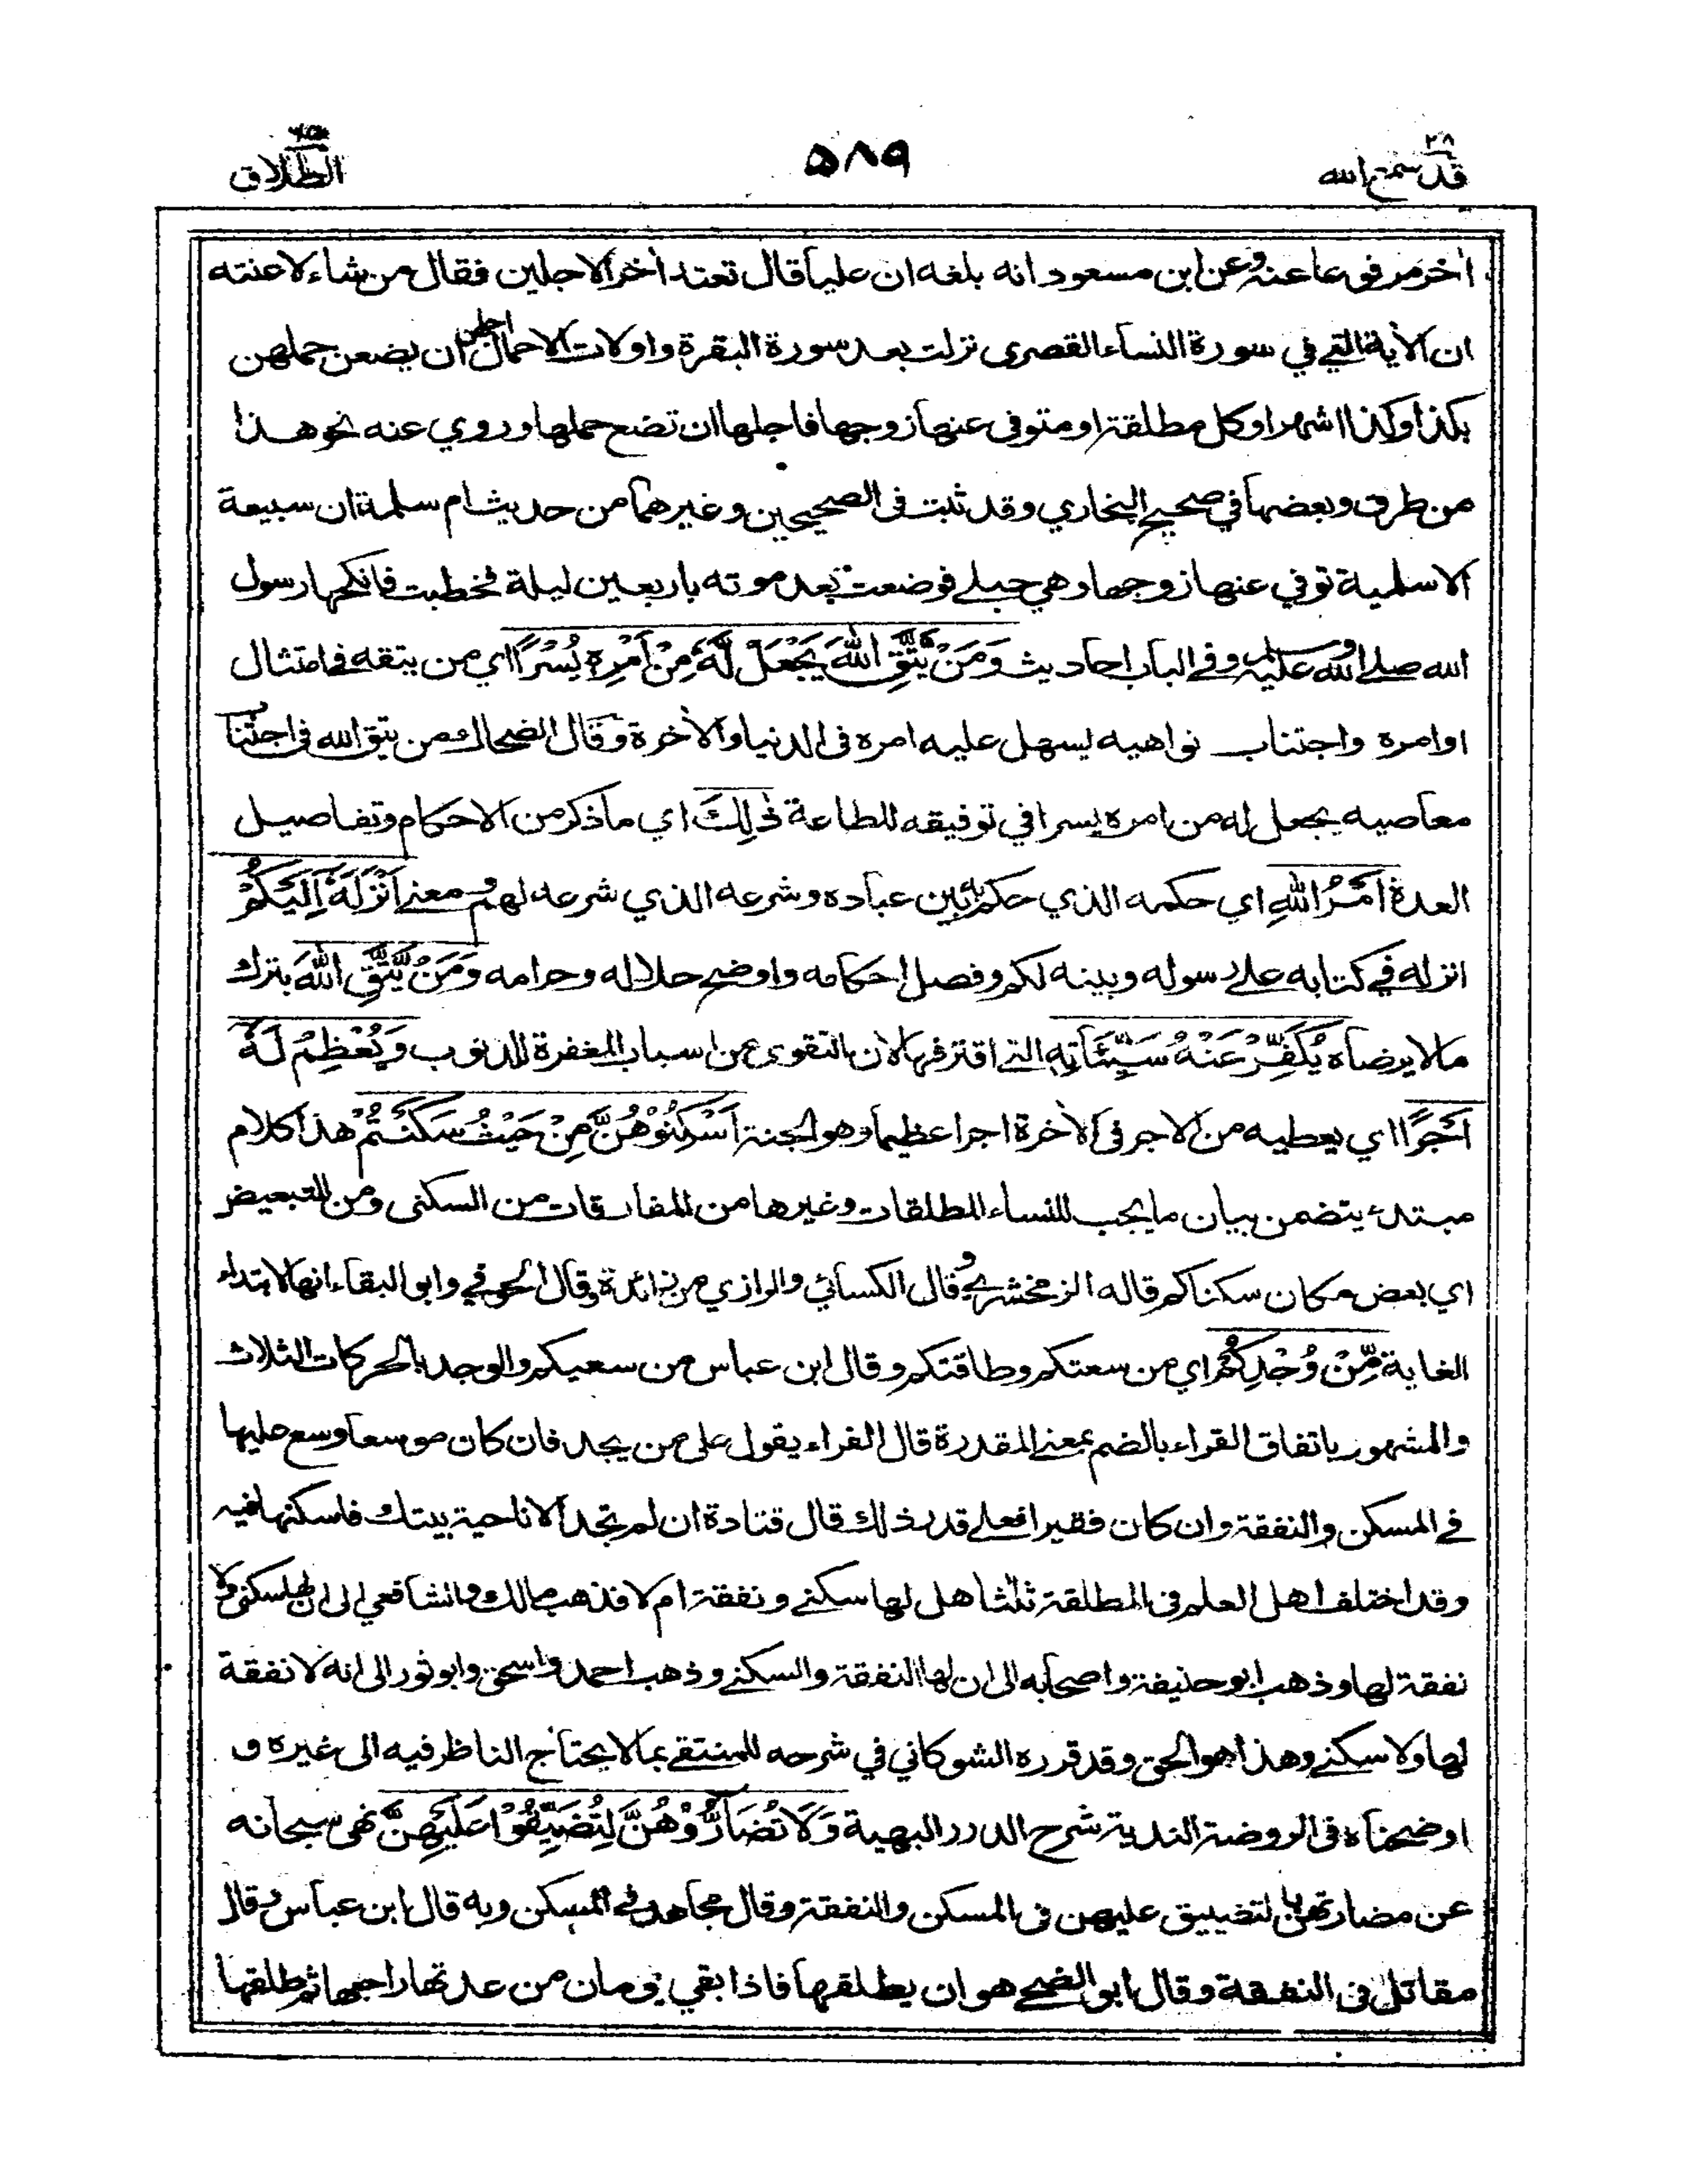 قد سمع الله ٢٨
٥٨٩
الطلاق
اخر مرفوعا عنه وعن ابن مسعود انه بلغه ان عليا قال تعتد اخر الاجلين فقال من شاء لاعنته
ان الاية التي في سورة النساء القصرى نزلت بعد سورة البقرة واولات الاحمال اجلهن ان يضعن حملهن
بكذا وكذا اشهرا وكل مطلقة او متوفى عنها زوجها فاجلها ان تضع حملها وروي عنه نحو هذا
من طرق وبعضها في صحيح البخاري وقد ثبت فى الصحيحين وغيرهما من حديث ام سلمة ان سبيعة
الاسلمية توفي عنها زوجها وهي حبلے فوضعت بعد موته باربعين ليلة فخطبت فانكحها رسول
الله صلے الله عليه وسلم وفے الباب احاديث وَمَنْ يَّتَّقِ اللهَ يَجْعَلْ لَّهُ مِنْ اَمْرِهِ يُسْرًا اي من يتقه فے امتثال
اوامره واجتناب نواهيه يسهل عليه امره فى الدنيا والاخرة وقال الضحاك من يتق الله فى اجتنا
معاصيه يجعل له من امره يسرا في توفيقه للطاعة ذٰلِكَ اي ما ذكر من الاحكام وتفاصيل
العدة اَمْرُ اللهِ اي حكمه الذي حكم به بين عباده وشرعه الذي شرعه لهم ومعنے اَنْزَلَهُ اِلَيْكُمْ
انزله في كتابه علے رسوله وبينه لكم وفصل احكامه واوضح حلاله وحرامه وَمَنْ يَّتَّقِ اللهَ بترك
مالا يرضاه يُكَفِّرْ عَنْهُ سَيِّئَاٰتِهِ التے اقترفها لان التقوى من اسباب المغفرة للذنوب وَيُعْظِمْ لَهُ
اَجْرًا اي يعطيه من الاجر فى الاخرة اجرا عظيما وهو الجنة اَسْكِنُوْهُنَّ مِنْ حَيْثُ سَكَنْتُمْ هذا كلام
مبتدء يتضمن بيان ما يجب للنساء المطلقات وغيرها من المفارقات من السكنى ومن للتبعيض
اي بعض مكان سكناكم قاله الزمخشري وقال الكسائي والرازي من زائدة وقال الحوفي وابو البقاء انها لابتداء
الغاية مِّنْ وُجْدِكُمْ اي من سعتكم وطاقتكم وقال ابن عباس من سعيكم والوجد بالحركات الثلاث
والمشهور باتفاق القراء بالضم بمعنے المقدرة قال الفراء يقول على من يجد فان كان موسعا وسع عليها
فے المسكن والنفقة وان كان فقيرا فعلے قدر ذلك قال قتادة ان لم تجد الا ناحية بيتك فاسكنها فيه
وقد اختلف اهل العلم فى المطلقة ثلٰثا هل لها سكنے ونفقة ام لا فذهب مالك والشافعي الى ان لها سكنى ولا
نفقة لها وذهب ابو حنيفة واصحابه الى ان لها النفقة والسكنے وذهب احمد واسحق وابو ثور الى انه لا نفقة
لها ولا سكنے وهذا هو الحق وقد قرره الشوكاني في شرحه للمنتقے بمالا يحتاج الناظر فيه الى غيره و
اوضحناه فى الروضة الندية شرح الدرر البهية وَلَا تُضَارُّوْهُنَّ لِتُضَيِّقُوْا عَلَيْهِنَّ نهى سبحانه
عن مضارتهن بالتضييق عليهن فى المسكن والنفقة وقال مجاهد فے المسكن وبه قال ابن عباس وقال
مقاتل فى النفقة وقال ابو الضحے هو ان يطلقها فاذا بقي يومان من عدتها راجعها ثم طلقها